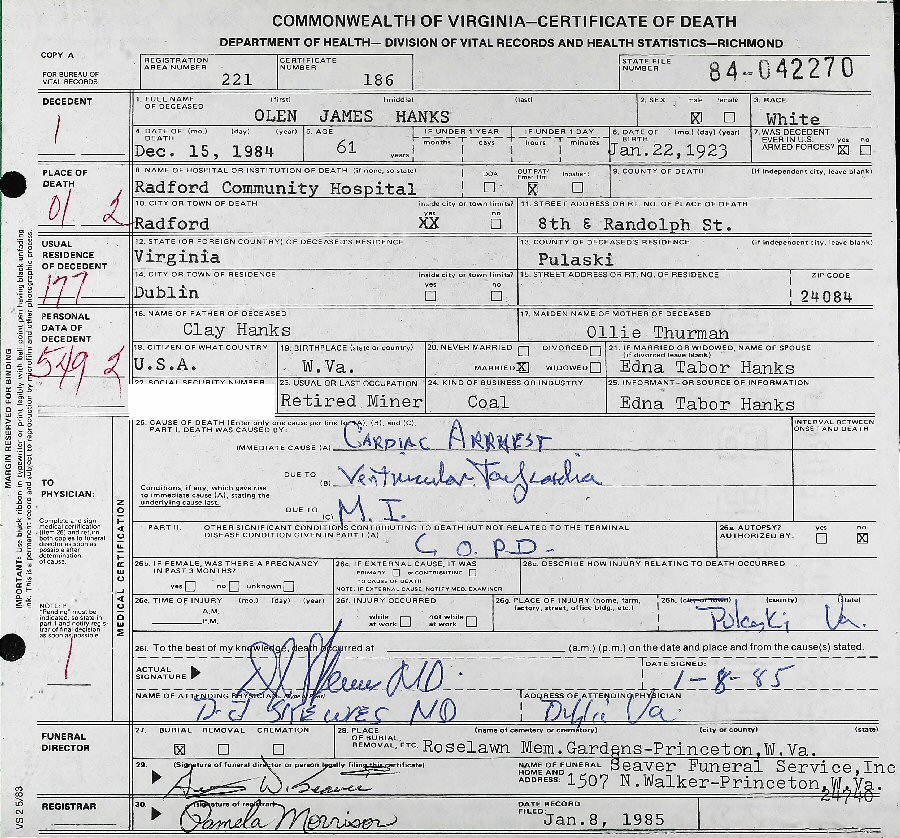 COMMONWEALTH OF VIRGINIA—CERTIFICATE OF DEATH
DEPARTMENT OF HEALTH— DIVISION OF VITAL RECORDS AND HEALTH STATISTICS—RICHMOND
COPY A
FOR BUREAU OF VITAL RECORDS
REGISTRATION AREA NUMBER 221 CERTIFICATE NUMBER 186 STATE FILE NUMBER 84-042270
DECEDENT
1
1. FULL NAME OF DECEASED (first) (middle) (last) OLEN JAMES HANKS
2. SEX male female X
3. RACE White
4. DATE OF DEATH (mo.) (day) (year) Dec. 15, 1984
5. AGE 61 years
IF UNDER 1 YEAR months days IF UNDER 1 DAY hours minutes
6. DATE OF BIRTH (mo.) (day) (year) Jan.22,1923
7. WAS DECEDENT EVER IN U.S. ARMED FORCES? yes no X
PLACE OF DEATH
01 2
8. NAME OF HOSPITAL OR INSTITUTION OF DEATH (if none, so state) Radford Community Hospital
DOA OUT PAT/ Emer. Rm Inpatient X
9. COUNTY OF DEATH (if independent city, leave blank)
10. CITY OR TOWN OF DEATH Radford inside city or town limits? yes no XX
11. STREET ADDRESS OR RT. NO. OF PLACE OF DEATH 8th & Randolph St.
USUAL RESIDENCE OF DECEDENT
177
12. STATE (OR FOREIGN COUNTRY) OF DECEASED'S RESIDENCE Virginia
13. COUNTY OF DECEASED'S RESIDENCE (if independent city, leave blank) Pulaski
14. CITY OR TOWN OF RESIDENCE Dublin inside city or town limits? yes no
15. STREET ADDRESS OR RT. NO. OF RESIDENCE ZIP CODE 24084
PERSONAL DATA OF DECEDENT
549 2
16. NAME OF FATHER OF DECEASED Clay Hanks
17. MAIDEN NAME OF MOTHER OF DECEASED Ollie Thurman
18. CITIZEN OF WHAT COUNTRY U.S.A.
19. BIRTHPLACE (state or country) W.Va.
20. NEVER MARRIED DIVORCED MARRIED X WIDOWED
21. IF MARRIED OR WIDOWED, NAME OF SPOUSE (if divorced leave blank) Edna Tabor Hanks
22. SOCIAL SECURITY NUMBER
23. USUAL OR LAST OCCUPATION Retired Miner
24. KIND OF BUSINESS OR INDUSTRY Coal
25. INFORMANT—OR SOURCE OF INFORMATION Edna Tabor Hanks
MARGIN RESERVED FOR BINDING
IMPORTANT: Use black ribbon in typewriter or print legibly with ball point pen having black unfading ink. This is a permanent record and subject to reproduction by microfilm and other photographic process.
TO PHYSICIAN:
Complete and sign medical certification (item 26) and return both copies to funeral director as soon as possible after determination of cause.
NOTE: If "Pending" must be indicated, so state in part I and notify registrar of final decision as soon as possible
1
MEDICAL CERTIFICATION
26. CAUSE OF DEATH (Enter only one cause per line for (A), (B), and (C).
PART I. DEATH WAS CAUSED BY:
INTERVAL BETWEEN ONSET AND DEATH
IMMEDIATE CAUSE (A) CARDIAC ARRHEST
DUE TO (B) Ventricular Tachycardia
Conditions, if any, which gave rise to immediate cause (A), stating the underlying cause last.
DUE TO (C) M. I.
PART II. OTHER SIGNIFICANT CONDITIONS CONTRIBUTING TO DEATH BUT NOT RELATED TO THE TERMINAL DISEASE CONDITION GIVEN IN PART I (A)
C O. P.D.
26a. AUTOPSY? AUTHORIZED BY: yes no X
26b. IF FEMALE, WAS THERE A PREGNANCY IN PAST 3 MONTHS? yes no unknown
26c. IF EXTERNAL CAUSE, IT WAS PRIMARY or CONTRIBUTING TO CAUSE OF DEATH
NOTE: IF EXTERNAL CAUSE, NOTIFY MED. EXAMINER
26d. DESCRIBE HOW INJURY RELATING TO DEATH OCCURRED
26e. TIME OF INJURY (mo.) (day) (year) A.M. P.M.
26f. INJURY OCCURRED while at work not while at work
26g. PLACE OF INJURY (home, farm, factory, street, office bldg., etc.)
26h. (city or town) (county) (state) Pulaski Va.
26i. To the best of my knowledge, death occurred at (a.m.) (p.m.) on the date and place and from the cause(s) stated.
ACTUAL SIGNATURE MD.
DATE SIGNED: 1-8-85
NAME OF ATTENDING PHYSICIAN MD
ADDRESS OF ATTENDING PHYSICIAN Dublin Va.
FUNERAL DIRECTOR
27. BURIAL REMOVAL CREMATION X
28. PLACE OF BURIAL, REMOVAL, ETC. (name of cemetery or crematory) (city or county) (state) Roselawn Mem.Gardens-Princeton,W.Va.
29. (Signature of funeral director or person legally filing this certificate) W. Seaver
NAME OF FUNERAL HOME AND ADDRESS: Seaver Funeral Service,Inc
1507 N.Walker-Princeton,W.Va.
24740
REGISTRAR
30. (signature of registrar) Pamela Morrison
DATE RECORD FILED: Jan.8, 1985
VS 2 5/83